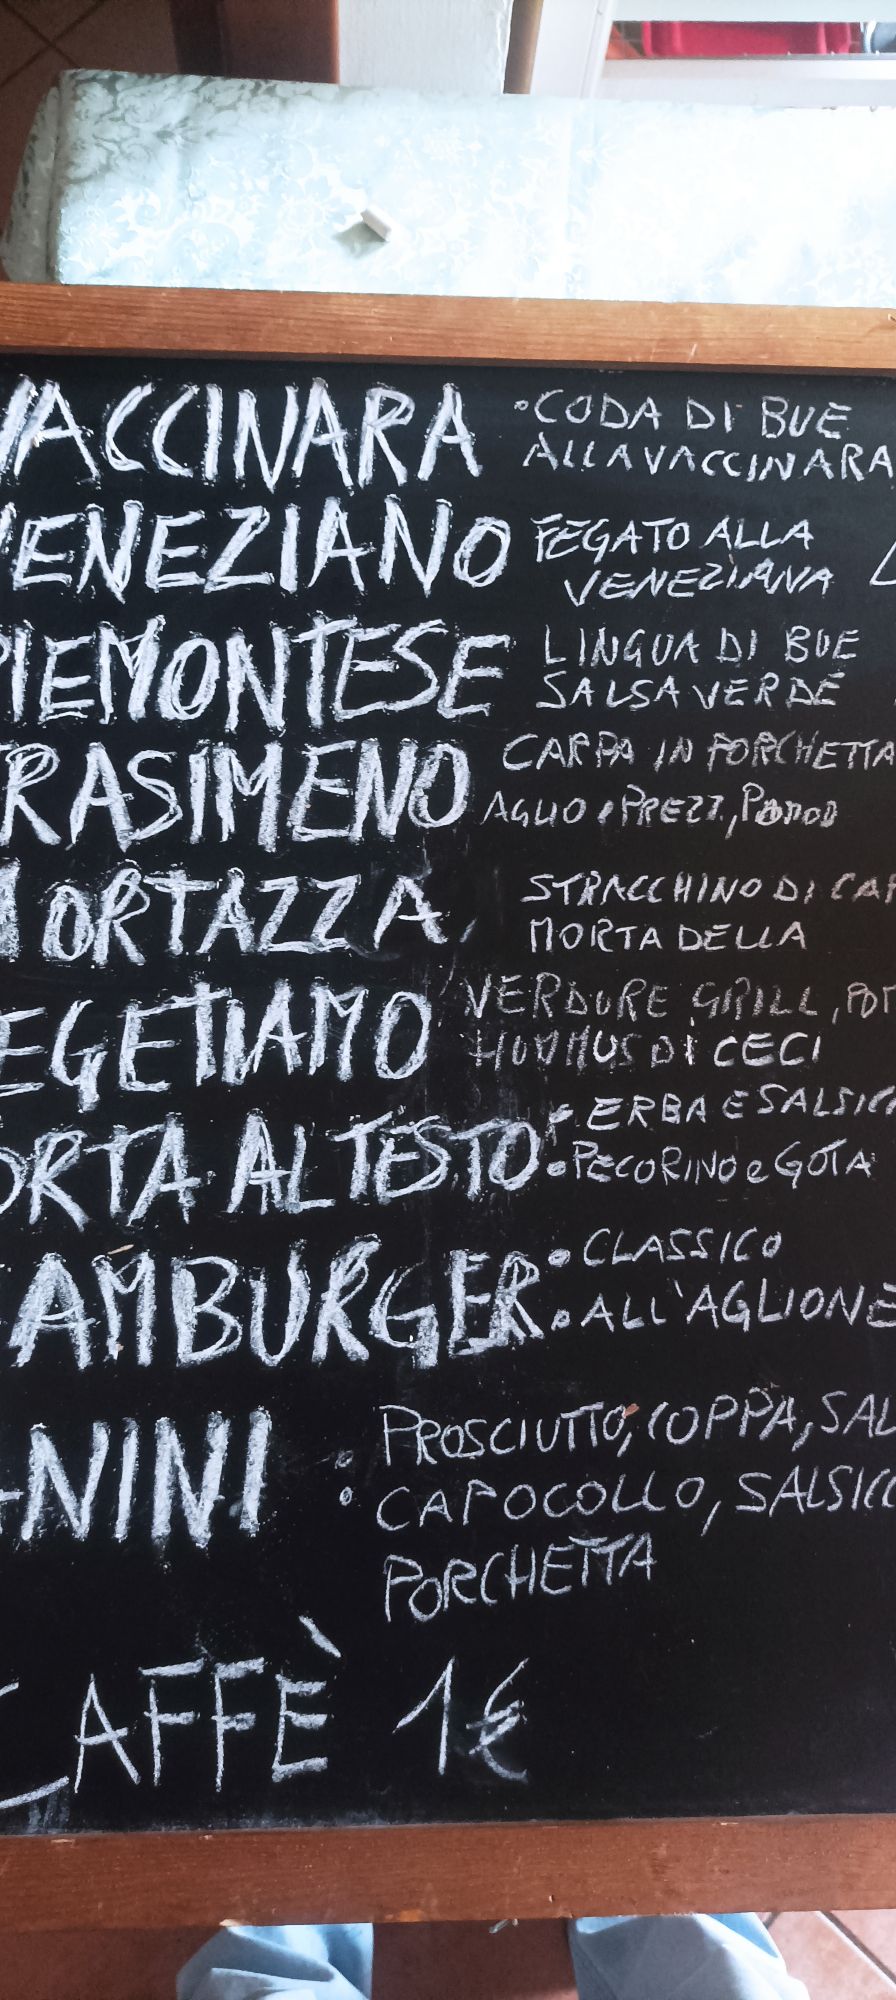 VACCINARA
·CODA DI BUE
ALLA VACCINARA
VENEZIANO
FEGATO ALLA
VENEZIANA
PIEMONTESE
LINGUA DI BUE
SALSA VERDE
RASIMENO
CARPA IN PORCHETTA
AGLIO e PREZZ, POMOD
MORTAZZA
STRACCHINO DI CAP
MORTADELLA
EGETIAMO
VERDURE GRILL, POM
HUMMUS DI CECI
ORTA AL TESTO
• ERBA E SALSICC
• PECORINO e GOTA
AMBURGER
• CLASSICO
• ALL'AGLIONE
ANINI
: PROSCIUTTO, COPPA, SAL
CAPOCOLLO, SALSICC
PORCHETTA
CAFFÈ 1€